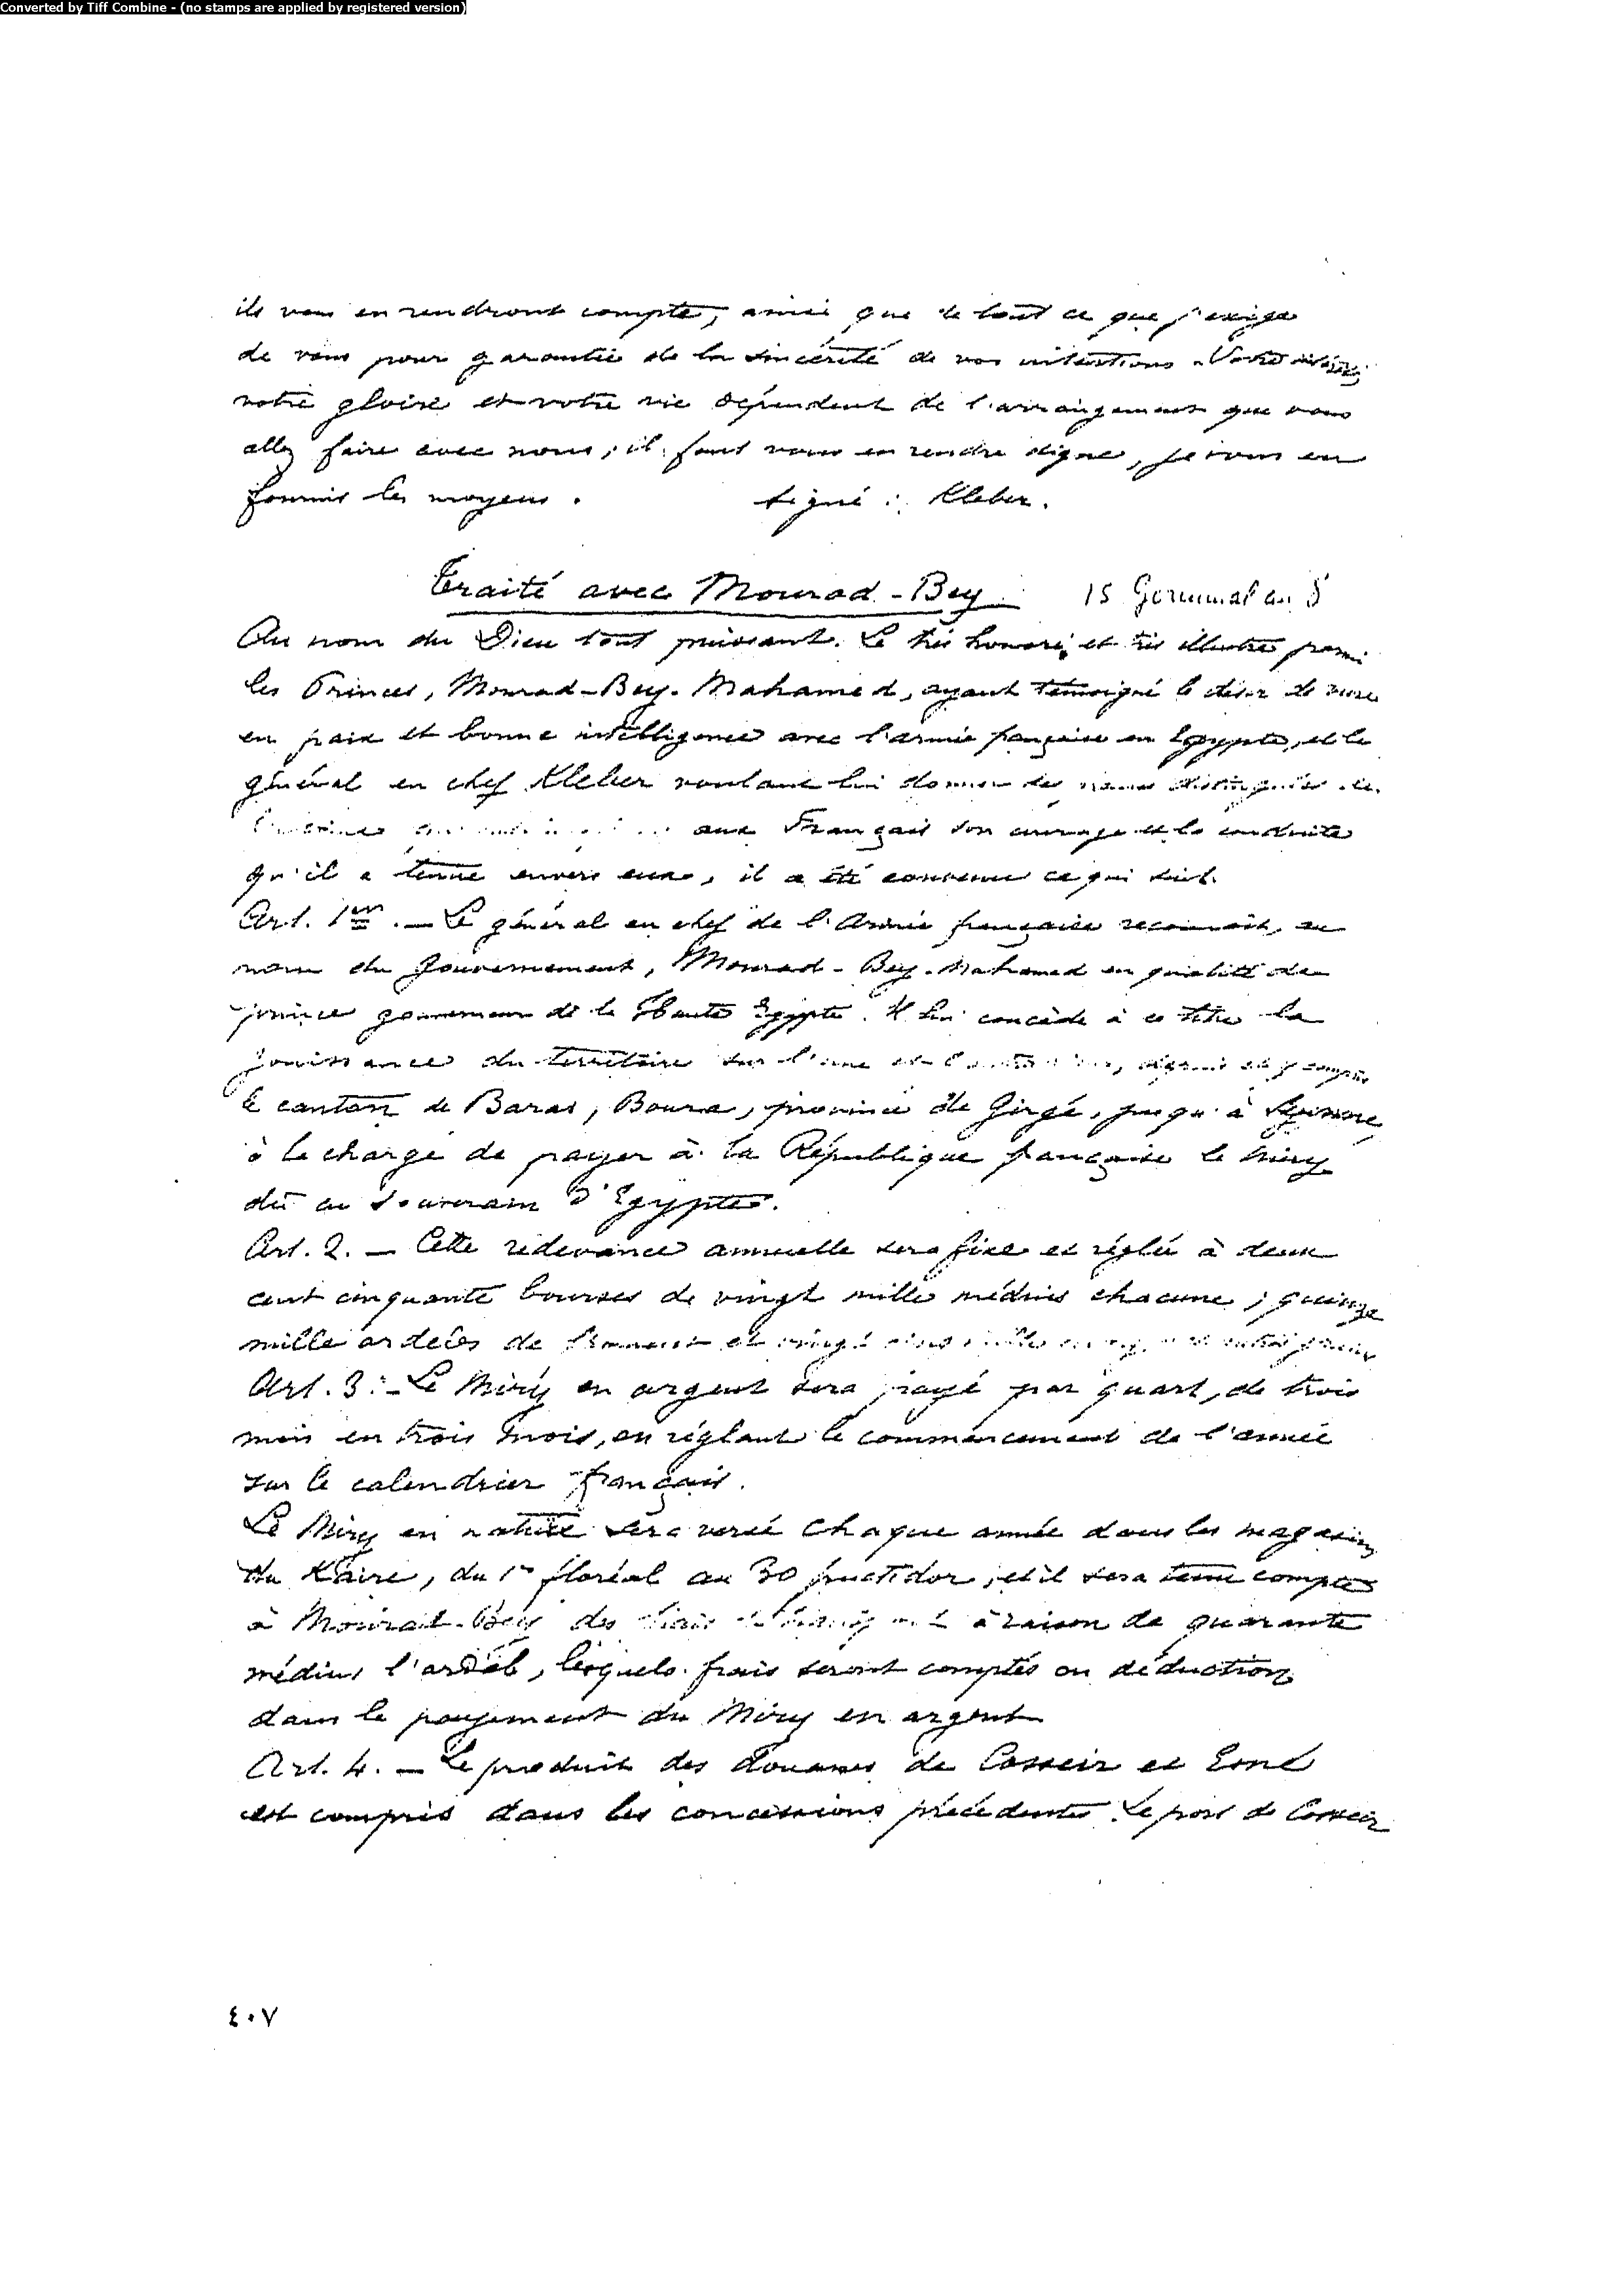 Converted by Tiff Combine - (no stamps are applied by registered version)
ils vous en rendront compte, ainsi que de tout ce que j'exige
de vous pour garantie de la sincérité de vos intentions. Votre
votre gloire et votre vie dépendent de l'arrangement que vous
allez faire avec nous; il faut vous en rendre digne, je vous en
fournis les moyens. Signé : Kleber.
Traité avec Mourad-Bey. 15 Germinal an 8
Au nom du Dieu tout puissant. Le très honoré et très illustre parmi
les Princes, Mourad-Bey-Mahamed, ayant témoigné le désir de vivre
en paix et bonne intelligence avec l'armée française en Egypte, et le
général en chef Kleber voulant lui donner des
aux Français son courage et la conduite
qu'il a tenue envers eux, il a été convenu ce qui suit.
Art. 1er. — Le général en chef de l'Armée française reconnait, au
nom du Gouvernement, Mourad-Bey-Mahamed en qualité de
prince gouverneur de la Haute Egypte. Il lui concède à ce titre la
jouissance du territoire sur l'une et
le canton de Baras, Boura, province de Girgé, jusqu'à
à la charge de payer à la République française le Miry
dû au souverain d'Egypte.
Art. 2. — Cette redevance annuelle sera fixe et réglée à deux
cent cinquante bourses de vingt mille médins chacune; quinze
mille ardebs de froment et
Art. 3. — Le Miry en argent sera payé par quart, de trois
mois en trois mois, en réglant le commencement de l'année
sur le calendrier français.
Le Miry en nature sera versé chaque année dans les magasins
du Kaire, du 1er floréal au 30 fructidor, et il sera tenu compte
à Mourad-Bey des frais à raison de quarante
médins l'ardeb, lesquels frais seront comptés en déduction
dans le payement du Miry en argent
Art. 4. — Le produit des douanes de Cosseir et Esné
est compris dans les concessions précédentes. Le port de Cosseir
٤٠٧